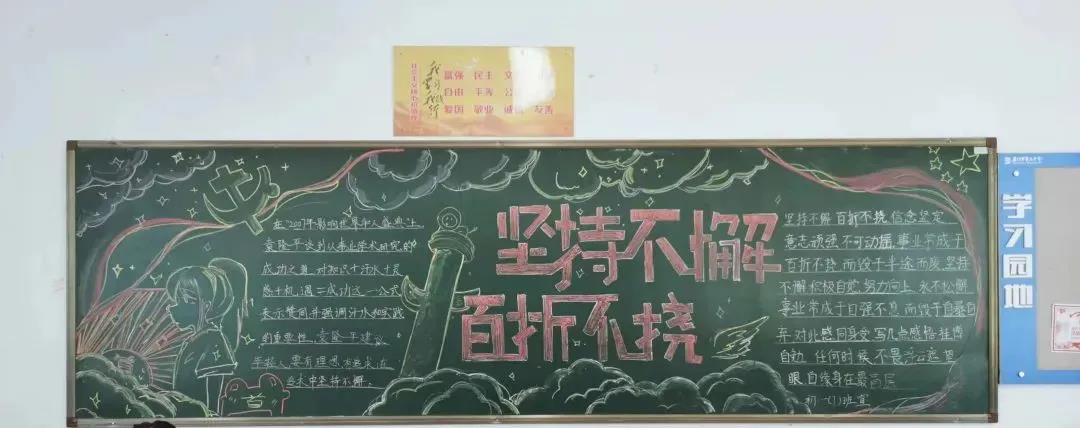 社会主义核心价值观
富强 民主 文
自由 平等 公
爱国 敬业 诚信 友善
在"2007年影响世界华人盛典"上
袁隆平谈到从事业学术研究的
成功之道 对知识+汗水+灵
感+机遇=成功这一公式
表示赞同并强调汗水和实践
的重要性。袁隆平建议
年轻人要有理想 有追求,在
学术中坚持不懈。
坚持不懈
百折不挠
坚持不解 百折不挠 信念坚定
意志顽强 不可动摇,事业常成于
百折不挠 而毁于半途而废 坚持
不懈积极自觉 努力向上 永不松懈
事业常成于自强不息 而毁于自暴自
弃 对此感同身受 写几点感悟 挂博
自勉 任何时候 不畏浮云遮望
眼 自缘身在最高层
初一(1)班宣
学习园地